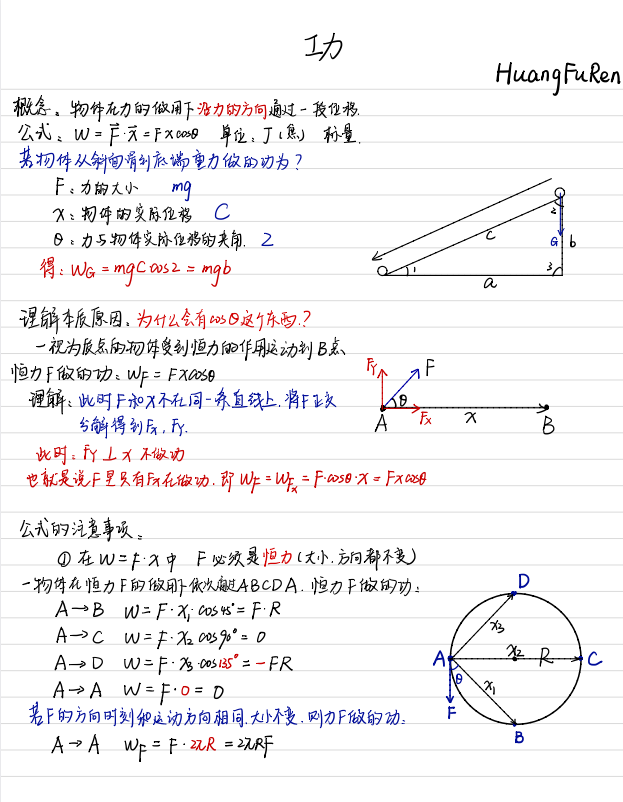 功
HuangFuRen
概念：物体在力的做用下沿力的方向通过一段位移.
公式：W = F⃗·x⃗ = Fxcosθ 单位：J(焦) 标量.
若物体从斜面滑到底端重力做的功为？
F：力的大小 mg
x：物体的实际位移 C
θ：力与物体实际位移的夹角. 2
得：WG = mgCcos2 = mgb
2
c
G
b
1
3
a
理解本质原因：为什么会有cosθ这个东西.？
一视为质点的物体受到恒力的作用运动到B点、
恒力F做的功：WF = FXcosθ
理解：此时F和X不在同一条直线上. 将F正交
分解得到Fx，Fy.
此时：Fy⊥x 不做功
也就是说F里只有Fx在做功. 即 WF = WFx = F·cosθ·x = Fxcosθ
Fy
F
θ
A
Fx
x
B
公式的注意事项：
① 在 W = F·x 中 F必须是恒力(大小.方向都不变)
一物体在恒力F的做用下依次通过ABCDA. 恒力F做的功：
A→B W = F·x₁·cos45° = F·R
A→C W = F·x₂cos90° = 0
A→D W = F·x₃·cos135° = -FR
A→A W = F·0 = 0
若F的方向时刻和运动方向相同.大小不变. 则力F做的功：
A→A WF = F·2πR = 2πRF
D
x₃
A
x₂
R
C
θ
x₁
F
B